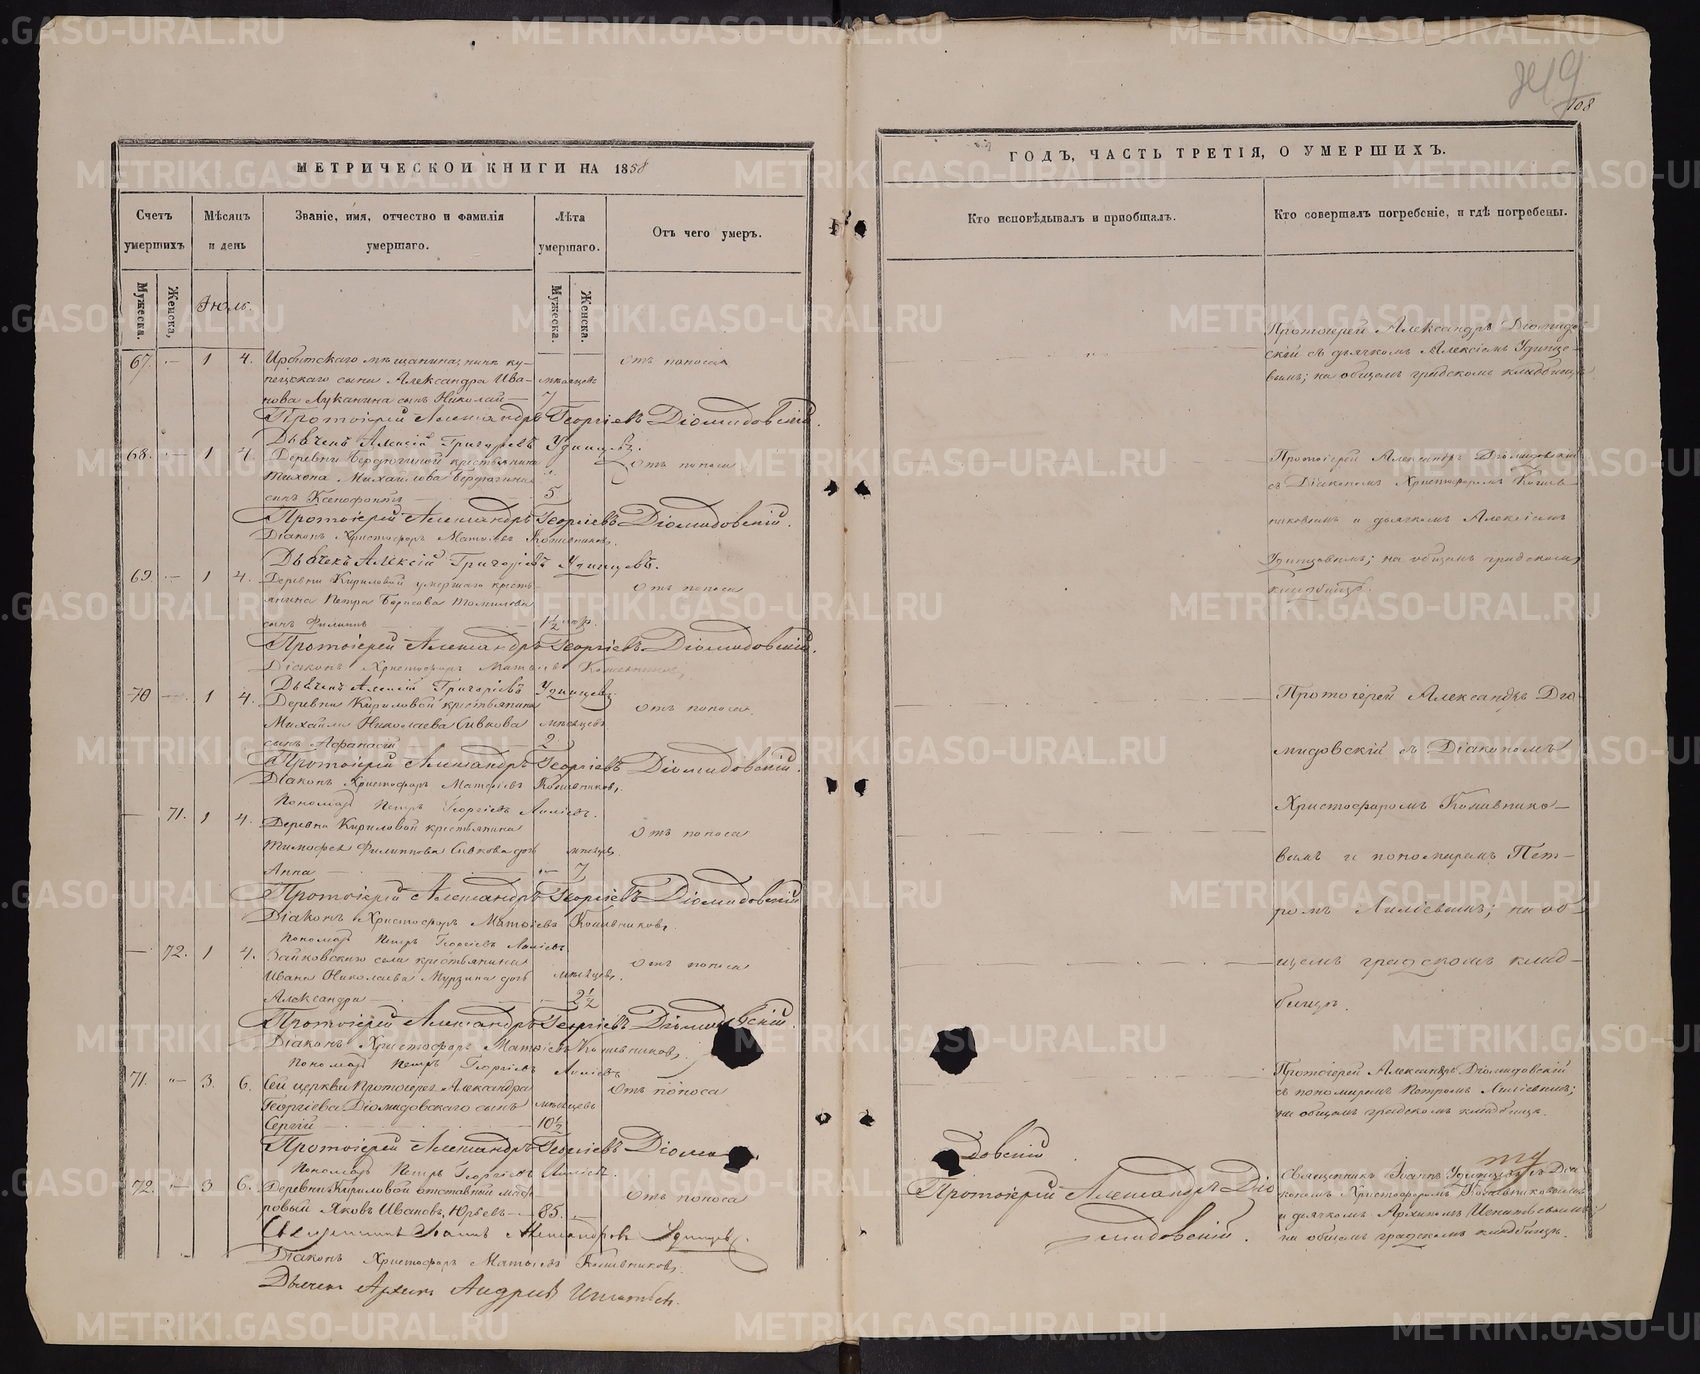 108
МЕТРИЧЕСКОЙ КНИГИ НА 1858
Счетъ умершихъ
Мужеска.
Женска,
Мѣсяцъ и день
Званіе, имя, отчество и фамилія умершаго.
Лѣта умершаго.
Мужеска.
Женска.
Отъ чего умеръ.
Іюль.
67. — 1 4. Ирбитскаго мѣщанина, нынѣ ку- отъ поноса
пецкаго сына Александра Ива- мѣсяцевъ
нова Луканина сынъ Николай — 7
Протоіерей Александръ Георгіевъ Діомидовскій.
Дьячекъ Алексій Григорьевъ Удинцевъ.
68. — 1 4. Деревни Бердюгиной крестьянина отъ поноса
Тихона Михайлова Бердюгина
сынъ Ксенофонтъ 5
Протоіерей Александръ Георгіевъ Діомидовскій.
Діаконъ Христофоръ Матѳіевъ
Дьячекъ Алексій Григорьевъ Удинцевъ.
69. — 1 4. Деревни Кириловой умершаго кресть- отъ поноса
янина Петра Борисова
сынъ Филиппъ 1½
Протоіерей Александръ Георгіевъ Діомидовскій.
Діаконъ Христофоръ Матѳіевъ
Дьячекъ Алексій Григорьевъ Удинцевъ
70 — 1 4. Деревни Кириловой крестьянина отъ поноса.
Михайла Николаева Сивкова мѣсяцевъ
сынъ Аѳанасій 2
Протоіерей Александръ Георгіевъ Діомидовскій.
Діаконъ Христофоръ Матѳіевъ
Пономарь Петръ Георгіевъ
— 71. 1 4. Деревни Кириловой крестьянина отъ поноса
Тимофея Филиппова Сивкова дочь мѣсяцев.
Анна — 7
Протоіерей Александръ Георгіевъ Діомидовскій
Діаконъ Христофоръ Матѳіевъ
Пономарь Петръ Георгіевъ
— 72. 1 4. Зайковскаго села крестьянина отъ поноса
Ивана Николаева Мурзина дочь мѣсяцев.
Александра 2½
Протоіерей Александръ Георгіевъ
Діаконъ Христофоръ Матѳіевъ
Пономарь Петръ Георгіевъ
71. — 3. 6. Сей церкви Протоіерея Александра отъ поноса
Георгіева Діомидовскаго сынъ мѣсяцевъ
Сергій 10½
Протоіерей Александръ Георгіевъ Діоми
Пономарь Петръ Георгіевъ
72. — 3 6. Деревни Кириловой отставной отъ поноса
Яковъ Ивановъ Юрьевъ — 85.
Священникъ Іоаннъ Александровъ Удинцевъ.
Діаконъ Христофоръ Матѳіевъ
Дьячекъ Архипъ Андріевъ
ГОДЪ, ЧАСТЬ ТРЕТІЯ, О УМЕРШИХЪ.
Кто исповѣдывалъ и пріобщалъ.
Кто совершалъ погребеніе, и гдѣ погребены.
Протоіерей Александръ Діомидов-
скій съ дьячкомъ Алексіемъ Удинце-
вымъ; на общемъ градскомъ кладбищѣ
Протоіерей Александръ Діомидовскій
съ Діакономъ Христофоромъ
и дьячкомъ Алексіемъ
Удинцовымъ; на общемъ градскомъ
кладбищѣ.
Протоіерей Александръ Діо-
мидовскій съ Діакономъ
Христофоромъ
вымъ и пономаремъ Пет-
ромъ на об-
щемъ градскомъ клад-
бищѣ.
Протоіерей Александръ Діомидовскій
съ пономаремъ Петромъ
на общемъ градскомъ кладбищѣ.
довскій
Протоіерей Александръ Діо
мидовскій.
Священникъ Іоаннъ Удинцевъ съ Діа-
кономъ Христофоромъ
и дьячкомъ Архипомъ
на общемъ градскомъ кладбищѣ.
METRIKI.GASO-URAL.RU